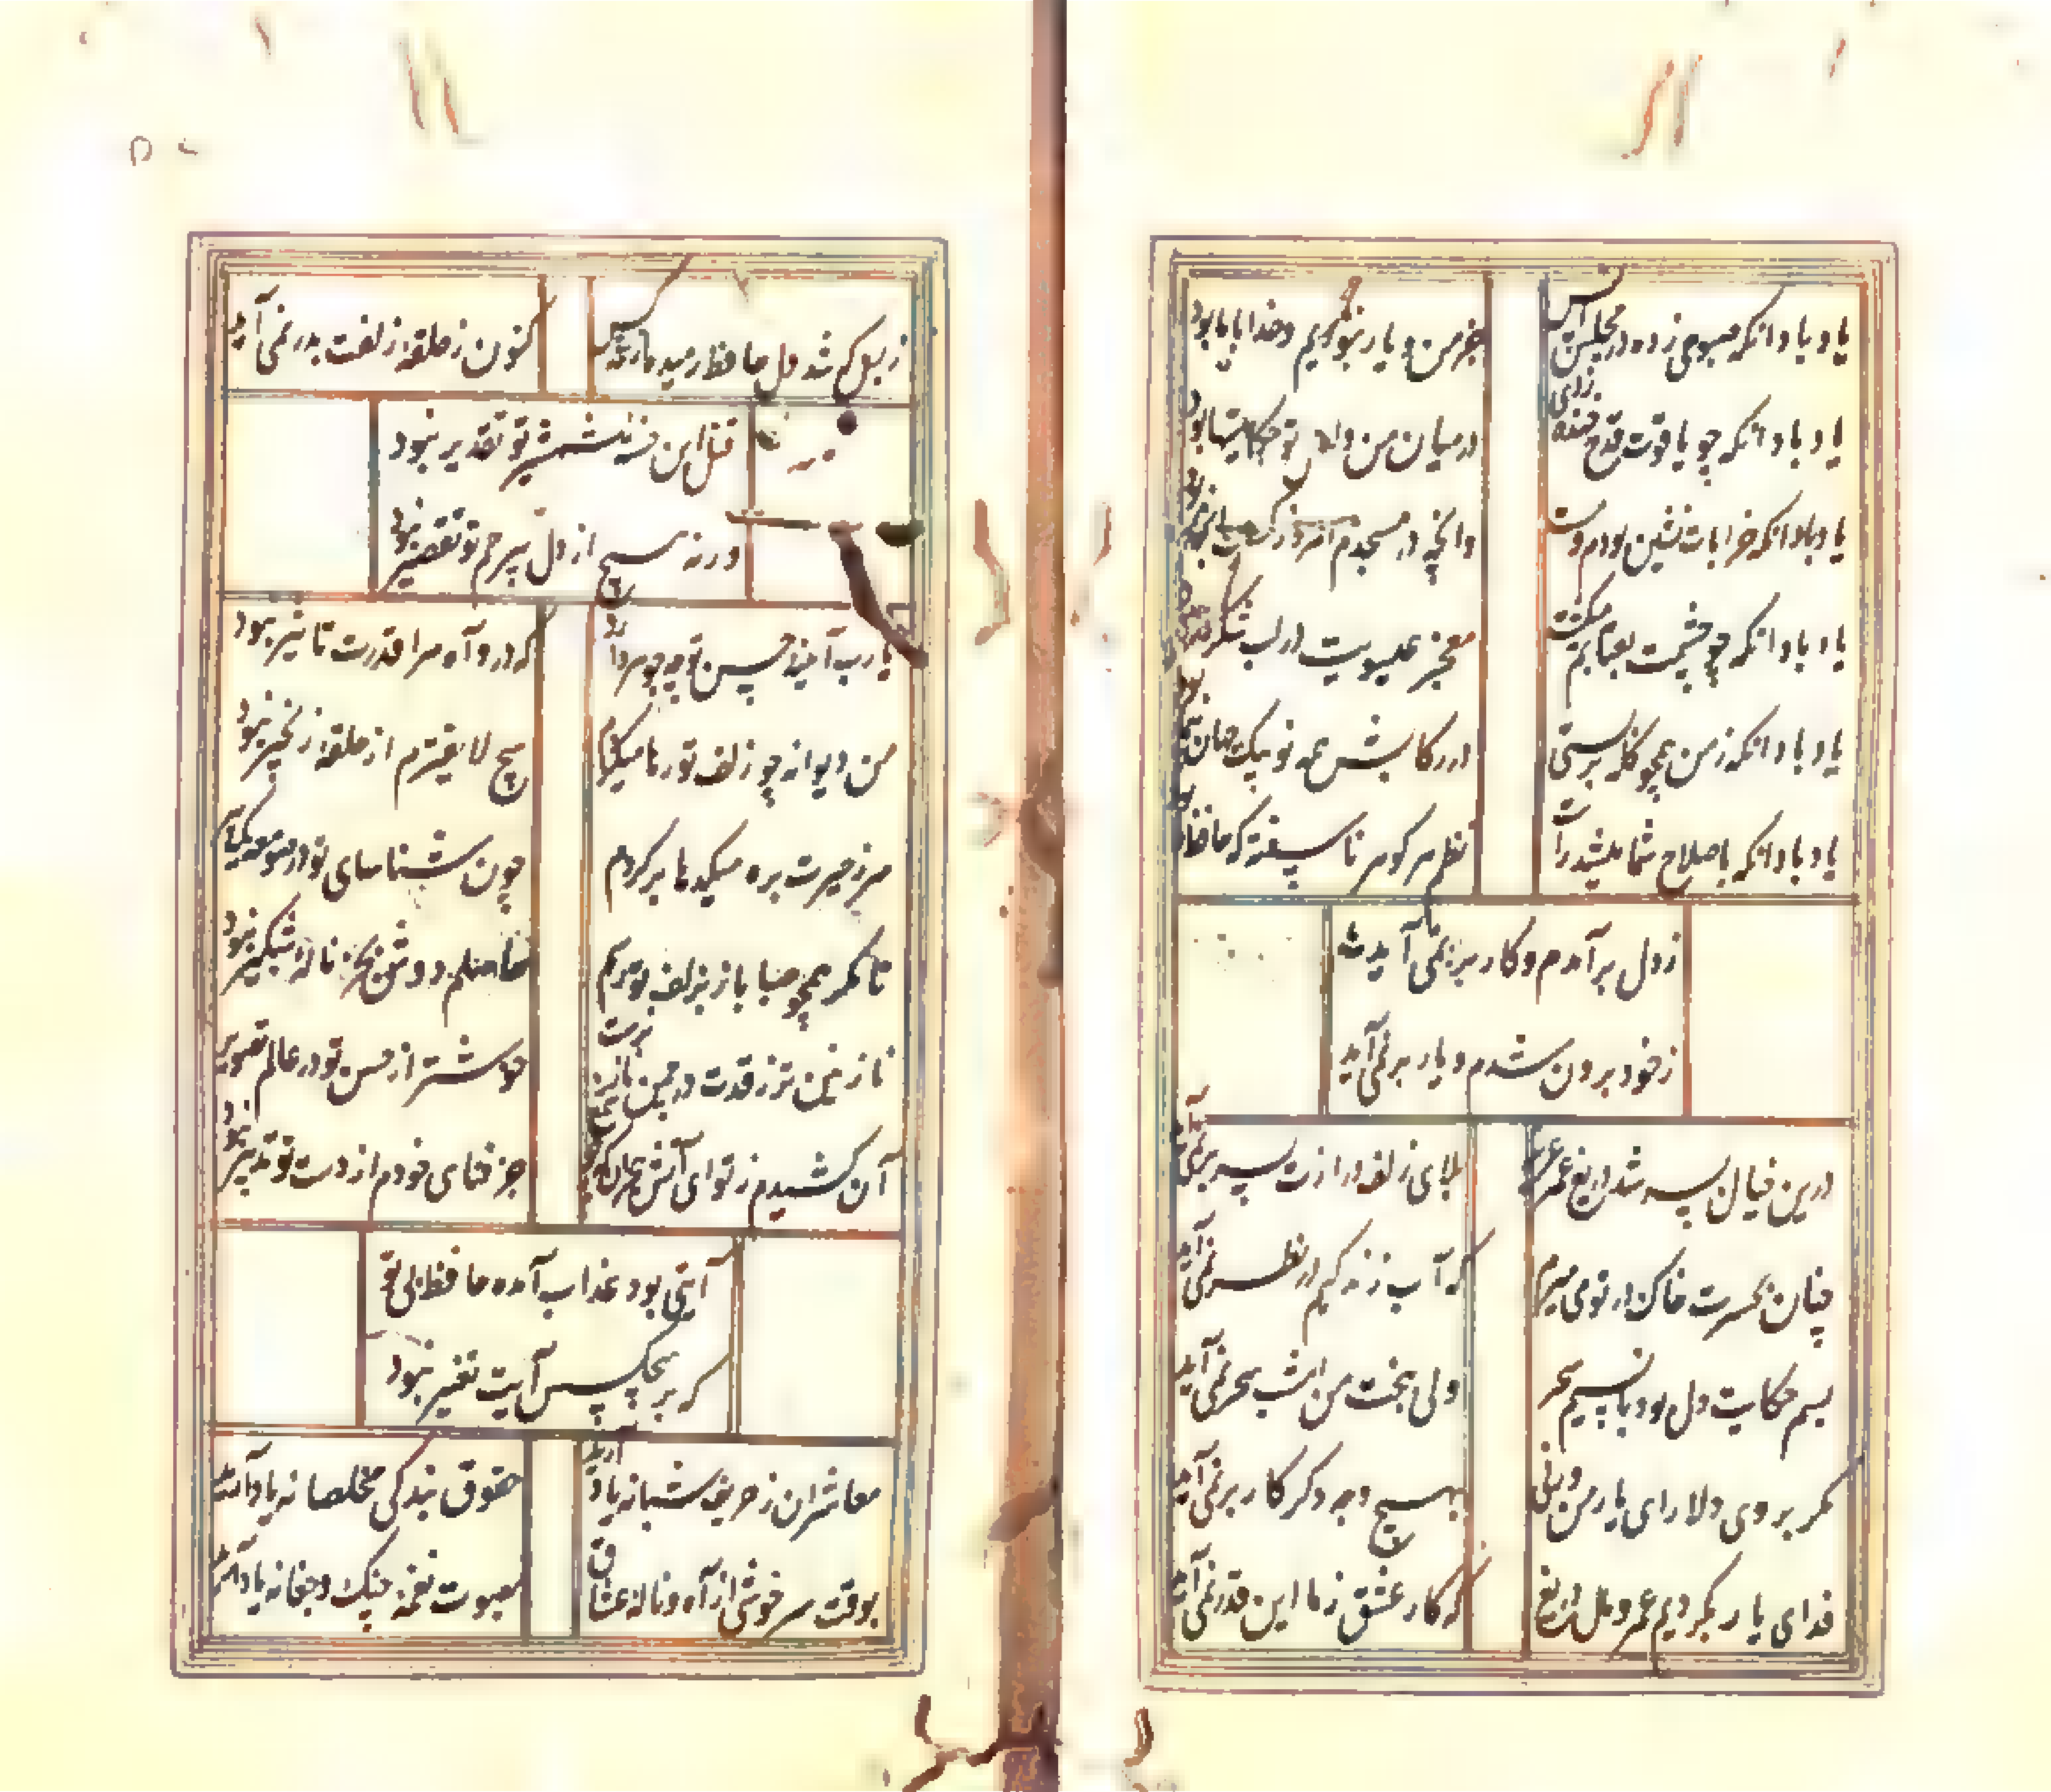 یاد باد انکه صبوحی زده در مجلس انس
جز من و یار نبودیم و خدا با ما بود
یاد باد انکه چو یاقوت قدح خنده زدی
در میان من و لعل تو حکایتها بود
یاد باد انکه خرابات نشین بودم و مست
وانچه در مسجدم امروز کمست انجا بود
یاد باد انکه چو چشمت بعتابم میکشت
معجز عیسویت در لب شکر خا بود
یاد باد انکه
در رکابش مه نو پیک جهان
یاد باد انکه باصلاح شما میشد راست
نظم هر گوهر ناسفته که حافظ را بود
ز دل برآمدم و کار بر نمی آید
ز خود برون شدم و یار بر نمی آید
درین خیال بسر شد دریغ عمر عزیز
بلای زلف درازت بسر نمی آید
چنان بحسرت خاک در تو می میرم
که آب زندگیم در نظر نمی آید
بسم حکایت دل بود با نسیم سحر
ولی ببخت من امشب سحر نمی آید
مگر بروی دلارای یار من ورنی
بهیچ وجه دگر کار بر نمی آید
فدای یار نکردیم عمر و مال دریغ
که کار عشق ز ما این قدر نمی آید
ز بس که شد دل حافظ رمیده از همه کس
کنون ز حلقه زلفت بدر نمی آید
قتل این خسته بشمشیر تو تقدیر نبود
ورنه هیچ از دل بیرحم تو تقصیر نبود
یا رب آئینه حسن تو چه جوهر دارد
که درو آه مرا قدرت تاثیر نبود
من دیوانه چو زلف تو رها میکردم
هیچ لایقترم از حلقه زنجیر نبود
سر ز حیرت بدر میکدها بر کردم
چون شناسای تو در صومعه یک
تا مگر همچو صبا باز بزلف تو رسم
حاصلم دوش بجز ناله شبگیر نبود
نازنین تر ز قدت در چمن ناز نرست
خوشتر از حسن تو در عالم تصویر نبود
آن کشیدم ز تو ای آتش هجران که چو شمع
جز فنای خودم از دست تو تدبیر نبود
آیتی بود عذاب آمده حافظ بی تو
که بر هیچکس آیت تفسیر نبود
معاشران ز حریف شبانه یاد آرید
حقوق بندگی مخلصانه یاد آرید
بوقت سر خوشی از آه و ناله عشاق
بصوت نغمه چنگ و چغانه یاد آرید